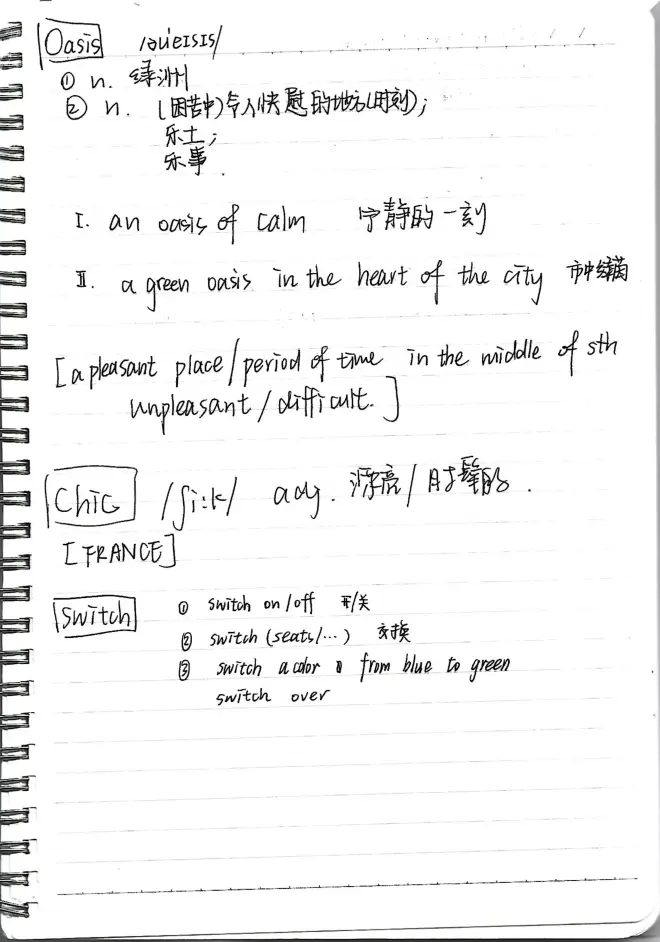 Oasis /əuˈeɪsɪs/
① n. 绿洲
② n. (困苦中)令人快慰的地方(时刻);
乐土;
乐事.
I. an oasis of calm 宁静的一刻
II. a green oasis in the heart of the city 市中
[a pleasant place/period of time in the middle of sth
unpleasant/difficult.]
Chic /ʃi:k/ adj. 漂亮/时髦的.
[FRANCE]
switch ① switch on/off 开/关
② switch (seats/...) 交换
③ switch a color from blue to green
switch over